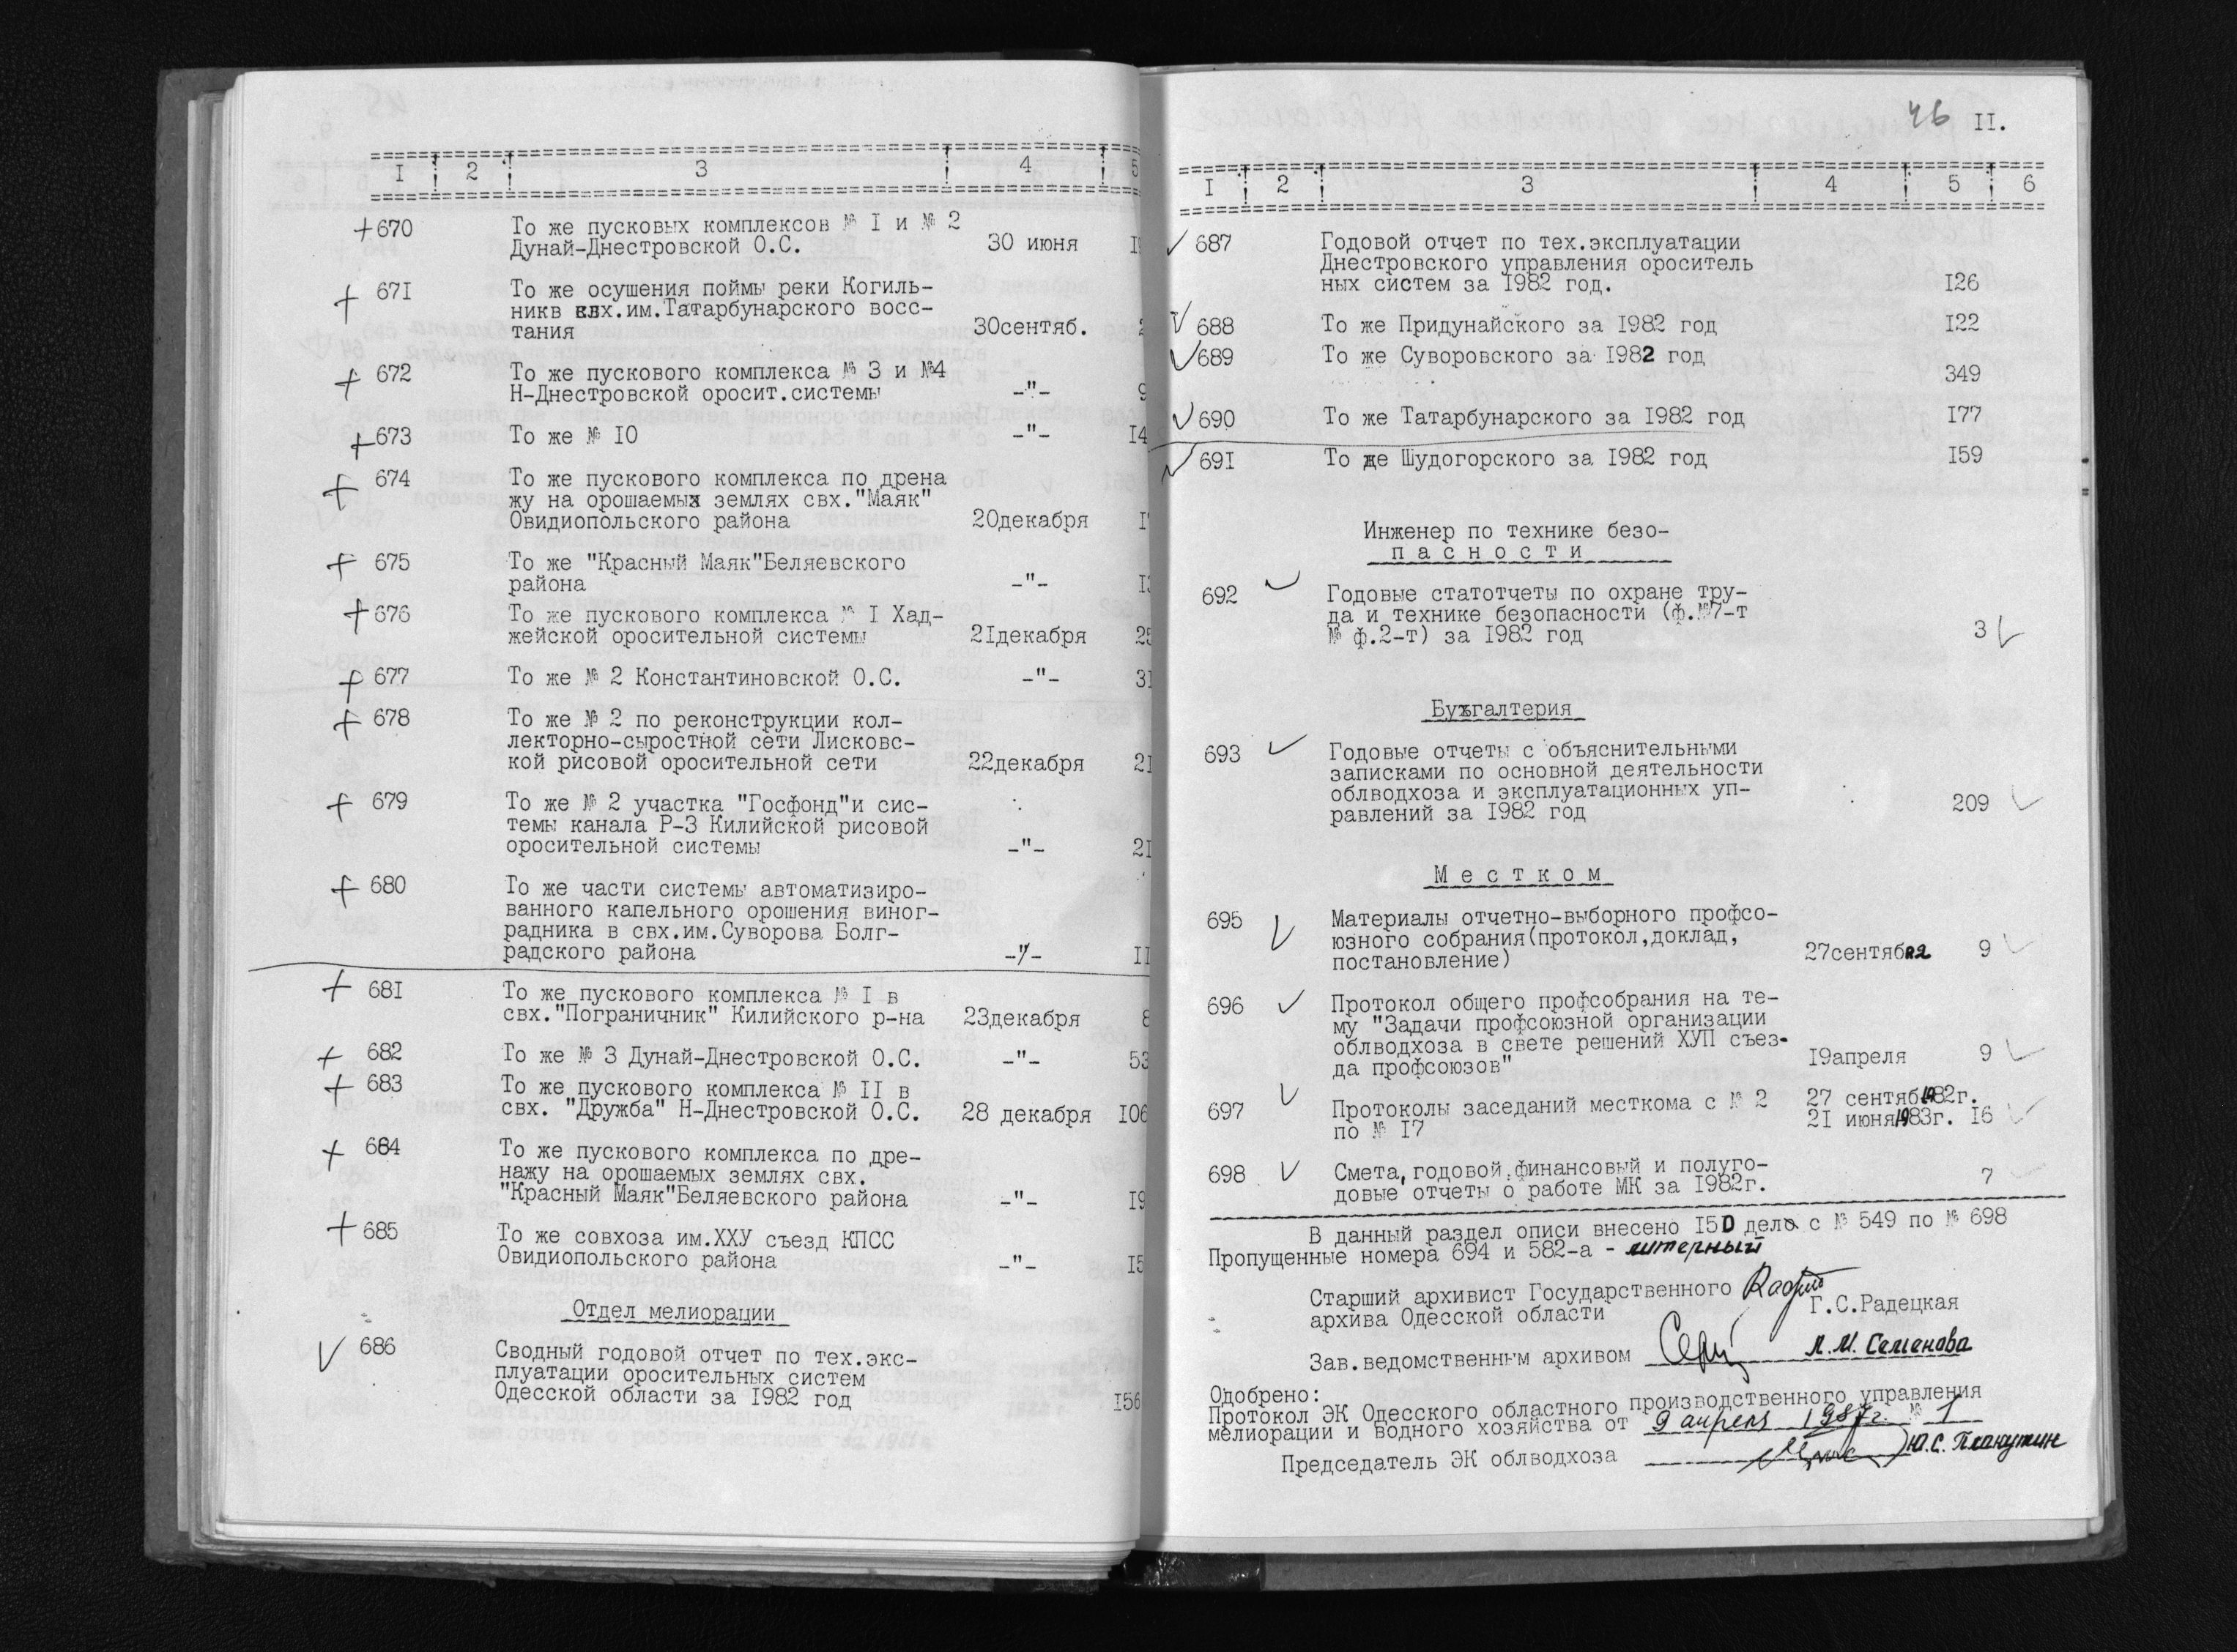 I 2 3 4 5
+670 То же пусковых комплексов № I и № 2
Дунай-Днестровской О.С. 30 июня
+ 671 То же осушения поймы реки Когиль-
никв клх.им.Татарбунарского восс-
тания 30сентяб. 2
+ 672 То же пускового комплекса № 3 и №4
Н-Днестровской оросит.системы -"- 9
+673 То же № 10 -"- I4
+ 674 То же пускового комплекса по дрена
жу на орошаемых землях свх."Маяк"
Овидиопольского района 20декабря
+ 675 То же "Красный Маяк"Беляевского
района -"- I3
+676 То же пускового комплекса № I Хад-
жейской оросительной системы 2Iдекабря 25
+ 677 То же № 2 Константиновской О.С. -"- 3I
+ 678 То же № 2 по реконструкции кол-
лекторно-сыростной сети Лисковс-
кой рисовой оросительной сети 22декабря 2I
+ 679 То же № 2 участка "Госфонд"и сис-
темы канала Р-3 Килийской рисовой
оросительной системы -"- 2I
+ 680 То же части системы автоматизиро-
ванного капельного орошения виног-
радника в свх.им.Суворова Болг-
радского района -"- II
+ 681 То же пускового комплекса № I в
свх."Пограничник" Килийского р-на 23декабря 8
+ 682 То же № 3 Дунай-Днестровской О.С. -"- 53
+ 683 То же пускового комплекса № II в
свх. "Дружба" Н-Днестровской О.С. 28 декабря I06
+ 684 То же пускового комплекса по дре-
нажу на орошаемых землях свх.
"Красный Маяк"Беляевского района -"- I9
+ 685 То же совхоза им.ХХУ съезд КПСС
Овидиопольского района -"- I5
Отдел мелиорации
686 Сводный годовой отчет по тех.экс-
плуатации оросительных систем
Одесской области за I982 год I56
46 II.
I 2 3 4 5 6
687 Годовой отчет по тех.эксплуатации
Днестровского управления ороситель
ных систем за I982 год. I26
688 То же Придунайского за I982 год I22
689 То же Суворовского за I982 год
349
690 То же Татарбунарского за I982 год I77
69I То же Шудогорского за I982 год I59
Инженер по технике безо-
п а с н о с т и
692 Годовые статотчеты по охране тру-
да и технике безопасности (ф.№7-т
№ ф.2-т) за I982 год 3
Бухгалтерия
693 Годовые отчеты с объяснительными
записками по основной деятельности
облводхоза и эксплуатационных уп-
равлений за I982 год 209
М е с т к о м
695 Материалы отчетно-выборного профсо-
юзного собрания(протокол,доклад,
постановление) 27сентября 9
696 Протокол общего профсобрания на те-
му "Задачи профсоюзной организации
облводхоза в свете решений ХУП съез-
да профсоюзов" I9апреля 9
697 Протоколы заседаний месткома с № 2 27 сентяб1982г.
по № I7 2I июня1983г. I6
698 Смета,годовой,финансовый и полуго-
довые отчеты о работе МК за I982г. 7
В данный раздел описи внесено I50 дело с № 549 по № 698
Пропущенные номера 694 и 582-а - литерный
Старший архивист Государственного
архива Одесской области Г.С.Радецкая
Зав.ведомственным архивом Л.М. Семенова
Одобрено:
Протокол ЭК Одесского областного производственного управления
мелиорации и водного хозяйства от 9 апреля 1987г. № 1
Председатель ЭК облводхоза Ю.С. Плакутин